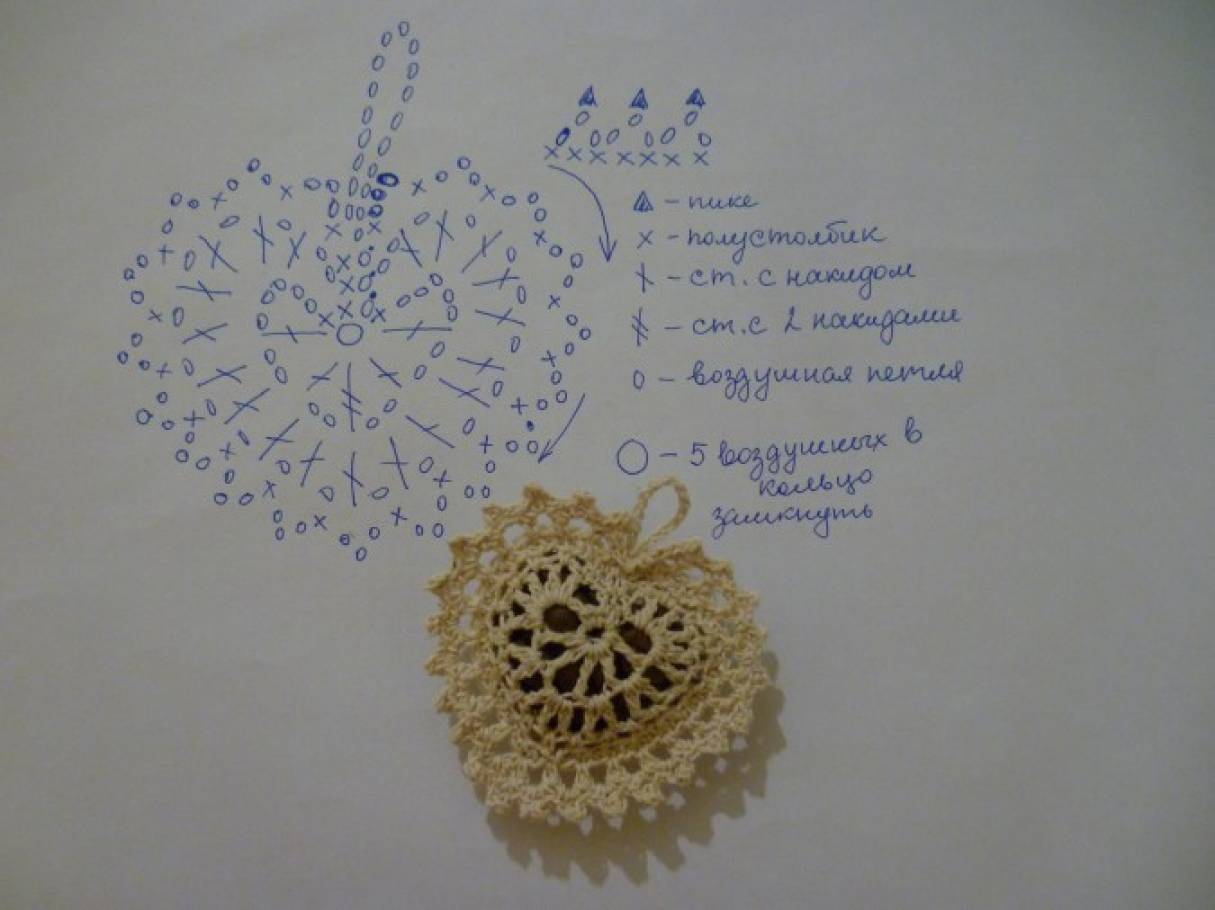 - пике
х - полустолбик
- ст. с накидом
- ст. с 2 накидами
0 - воздушная петля
О - 5 воздушных в
кольцо
замкнуть